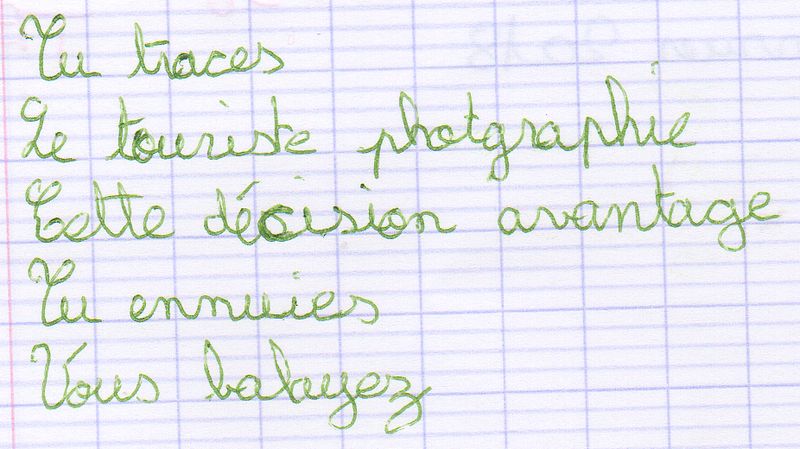 Tu traces
Le touriste photgraphie
Cette décision avantage
Tu ennuies
Vous balayez